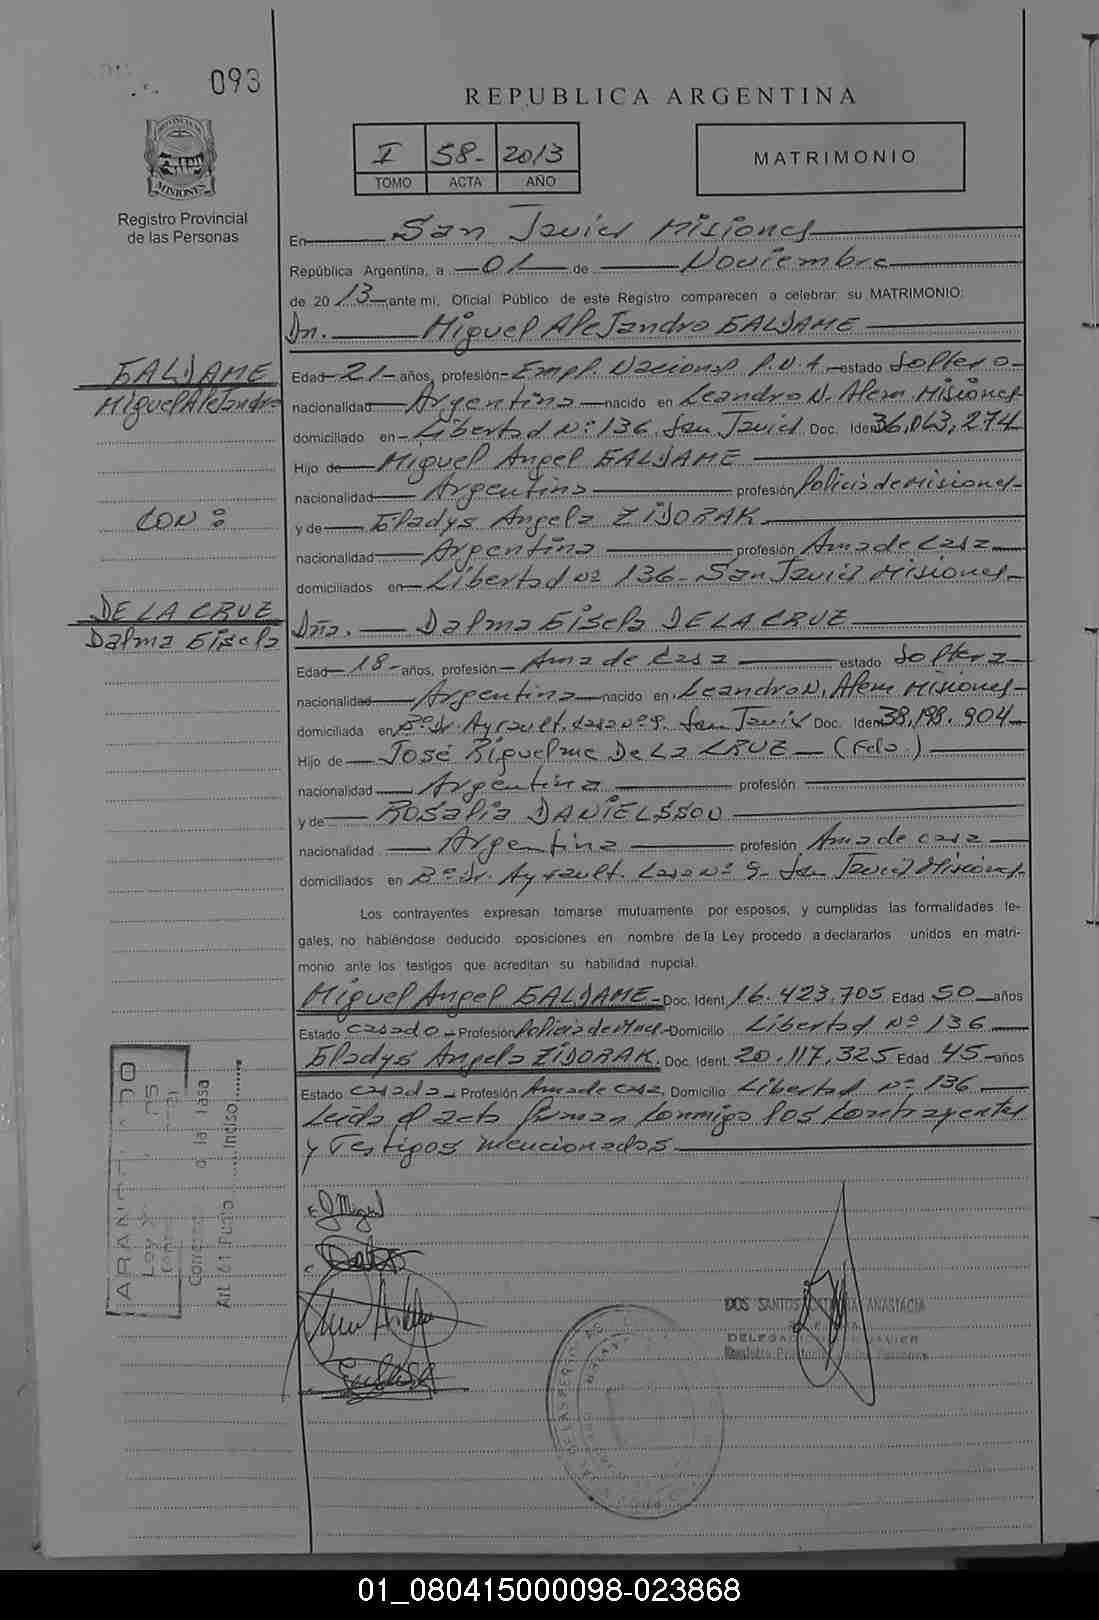 093
REPUBLICA ARGENTINA
I 58- 2013
TOMO ACTA AÑO
MATRIMONIO
PROVINCIA DE
MISIONES
Registro Provincial
de las Personas
En San Javier Misiones
República Argentina, a 01 de Noviembre
de 2013 ante mi, Oficial Público de este Registro comparecen a celebrar su MATRIMONIO:
Dn. Miguel Alejandro GALDAME
GALDAME
Miguel Alejandro
Edad 21 años, profesión Empl. Nacional P.N.A estado Soltero
nacionalidad Argentina nacido en Leandro N. Alem Misiones
domiciliado en Libertad Nº 136 San Javier Doc. Iden 36,063,274
Hijo de Miguel Angel GALDAME
nacionalidad Argentina profesión Policia de Misiones
CON :
y de Gladys Angela ZIDORAK
nacionalidad Argentina profesión Ama de Casa
domiciliados en Libertad nº 136- San Javier Misiones
DE LA CRUZ
Dalma Gisela
Dña. Dalma Gisela DE LA CRUZ
Edad 18 años, profesión Ama de Casa estado Soltera
nacionalidad Argentina nacido en Leandro N. Alem Misiones
domiciliada en Bº Dr. Ayrault. Casa nº 9. San Javier Doc. Iden 38,198.904
Hijo de José Riguelme De La CRUZ (Fdo.)
nacionalidad Argentina profesión
y de Rosalia DANIELSSON
nacionalidad Argentina profesión Ama de casa
domiciliados en Bº Dr. Ayrault. Casa Nº 9- San Javier Misiones
Los contrayentes expresan tomarse mutuamente por esposos, y cumplidas las formalidades le-
gales, no habiéndose deducido oposiciones en nombre de la Ley procedo a declararlos unidos en matri-
monio ante los testigos que acreditan su habilidad nupcial.
Miguel Angel GALDAME Doc. Ident. 16.423.705 Edad 50 años
Estado casado Profesión Policia de Mnes Domicilio Libertad Nº 136
Gladys Angela ZIDORAK. Doc. Ident. 20.117,325 Edad 45 años
Estado casada Profesión Ama de casa, Domicilio Libertad nº 136
Leida el acta firman conmigo los contrayentes
y Testigos mencionados
Ley
la tasa
Art. 61 Punto Inciso
DOS SANTOS ANASTACIA
01_080415000098-023868